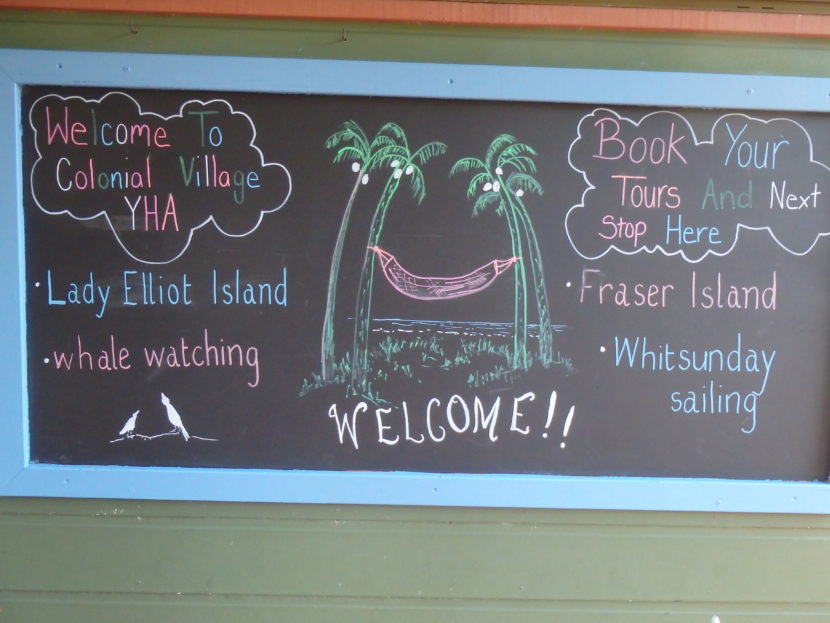 Welcome To
Colonial Village
YHA
• Lady Elliot Island
• whale watching
WELCOME!!
Book Your
Tours And Next
Stop Here
• Fraser Island
• Whitsunday
sailing